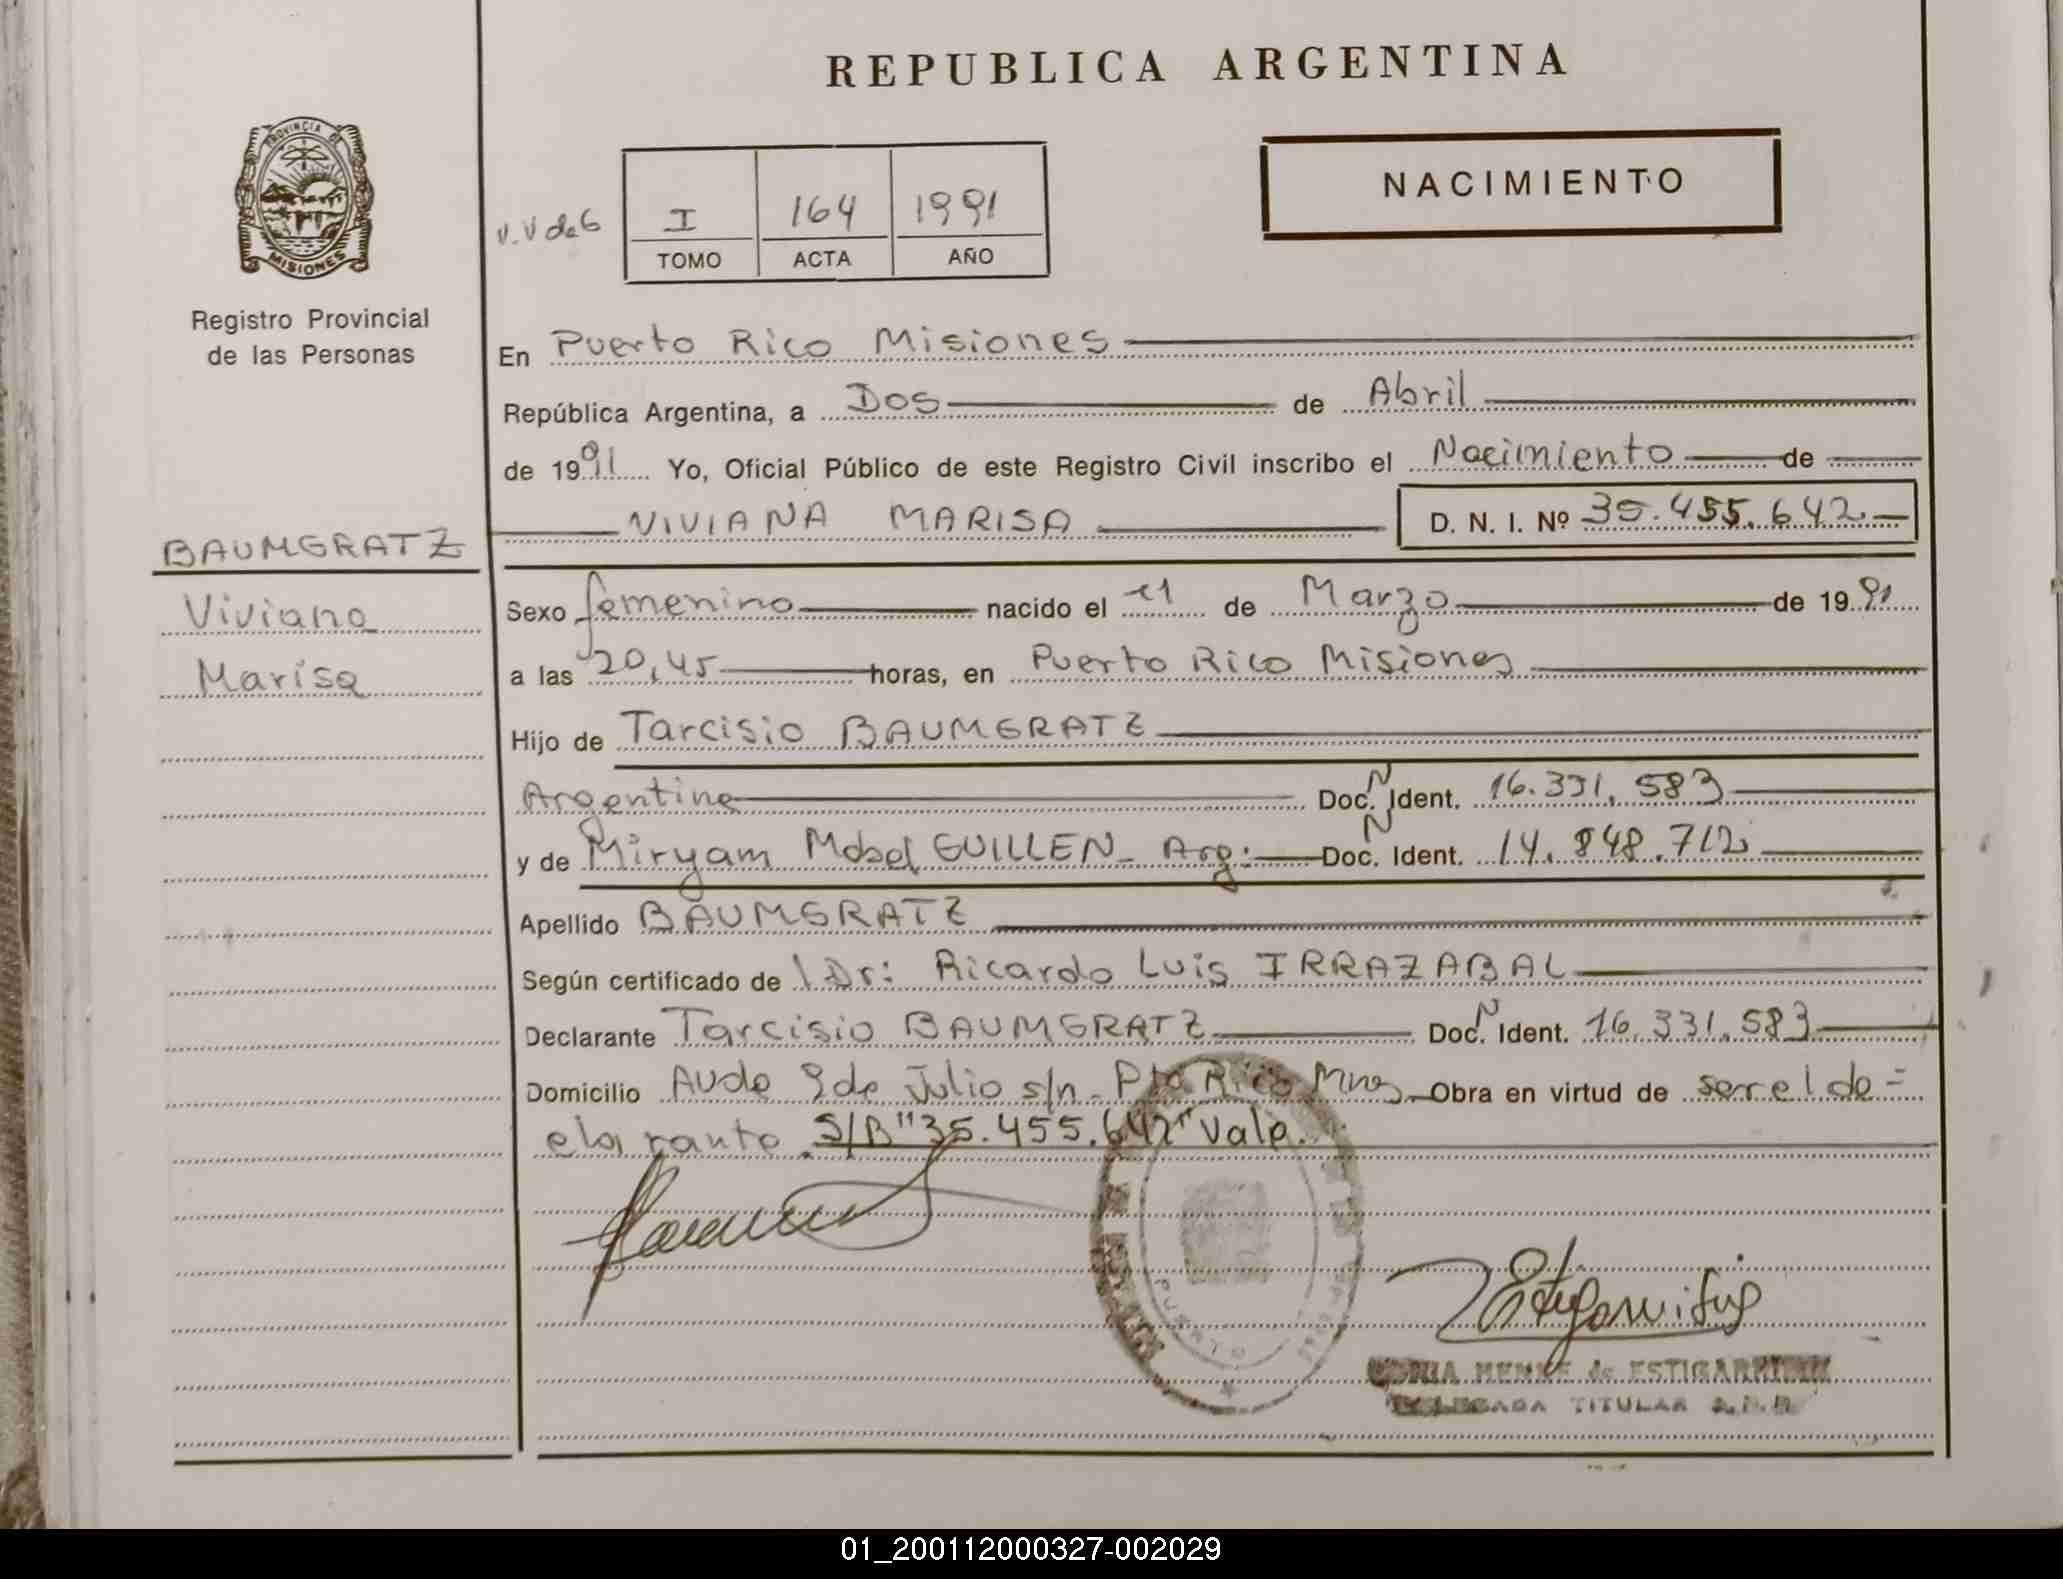 REPUBLICA ARGENTINA
NACIMIENTO
PROVINCIA DE
MISIONES
Registro Provincial
de las Personas
I 164 1991
TOMO ACTA AÑO
En Puerto Rico Misiones
República Argentina, a Dos de Abril
de 1991 Yo, Oficial Público de este Registro Civil inscribo el Nacimiento de
VIVIANA MARISA D. N. I. Nº 35.455.642
BAUMGRATZ
Viviana
Marisa
Sexo femenino nacido el 11 de Marzo de 1991
a las 20,45 horas, en Puerto Rico Misiones
Hijo de Tarcisio BAUMGRATZ
Argentina Doc. N Ident. 16.331.583
y de Miryam Mabel GUILLEN Arg: Doc. N Ident. 14.848.712
Apellido BAUMGRATZ
Según certificado de Dr: Ricardo Luis IRRAZABAL
Declarante Tarcisio BAUMGRATZ Doc. N Ident. 16.331.583
Domicilio Avda 9 de Julio s/n - Pto Rico Mnes Obra en virtud de ser el de=
clarante. S/B "35.455.642" Vale.
MENKE de ESTIGARRIBIA
DELEGADA TITULAR
01_200112000327-002029